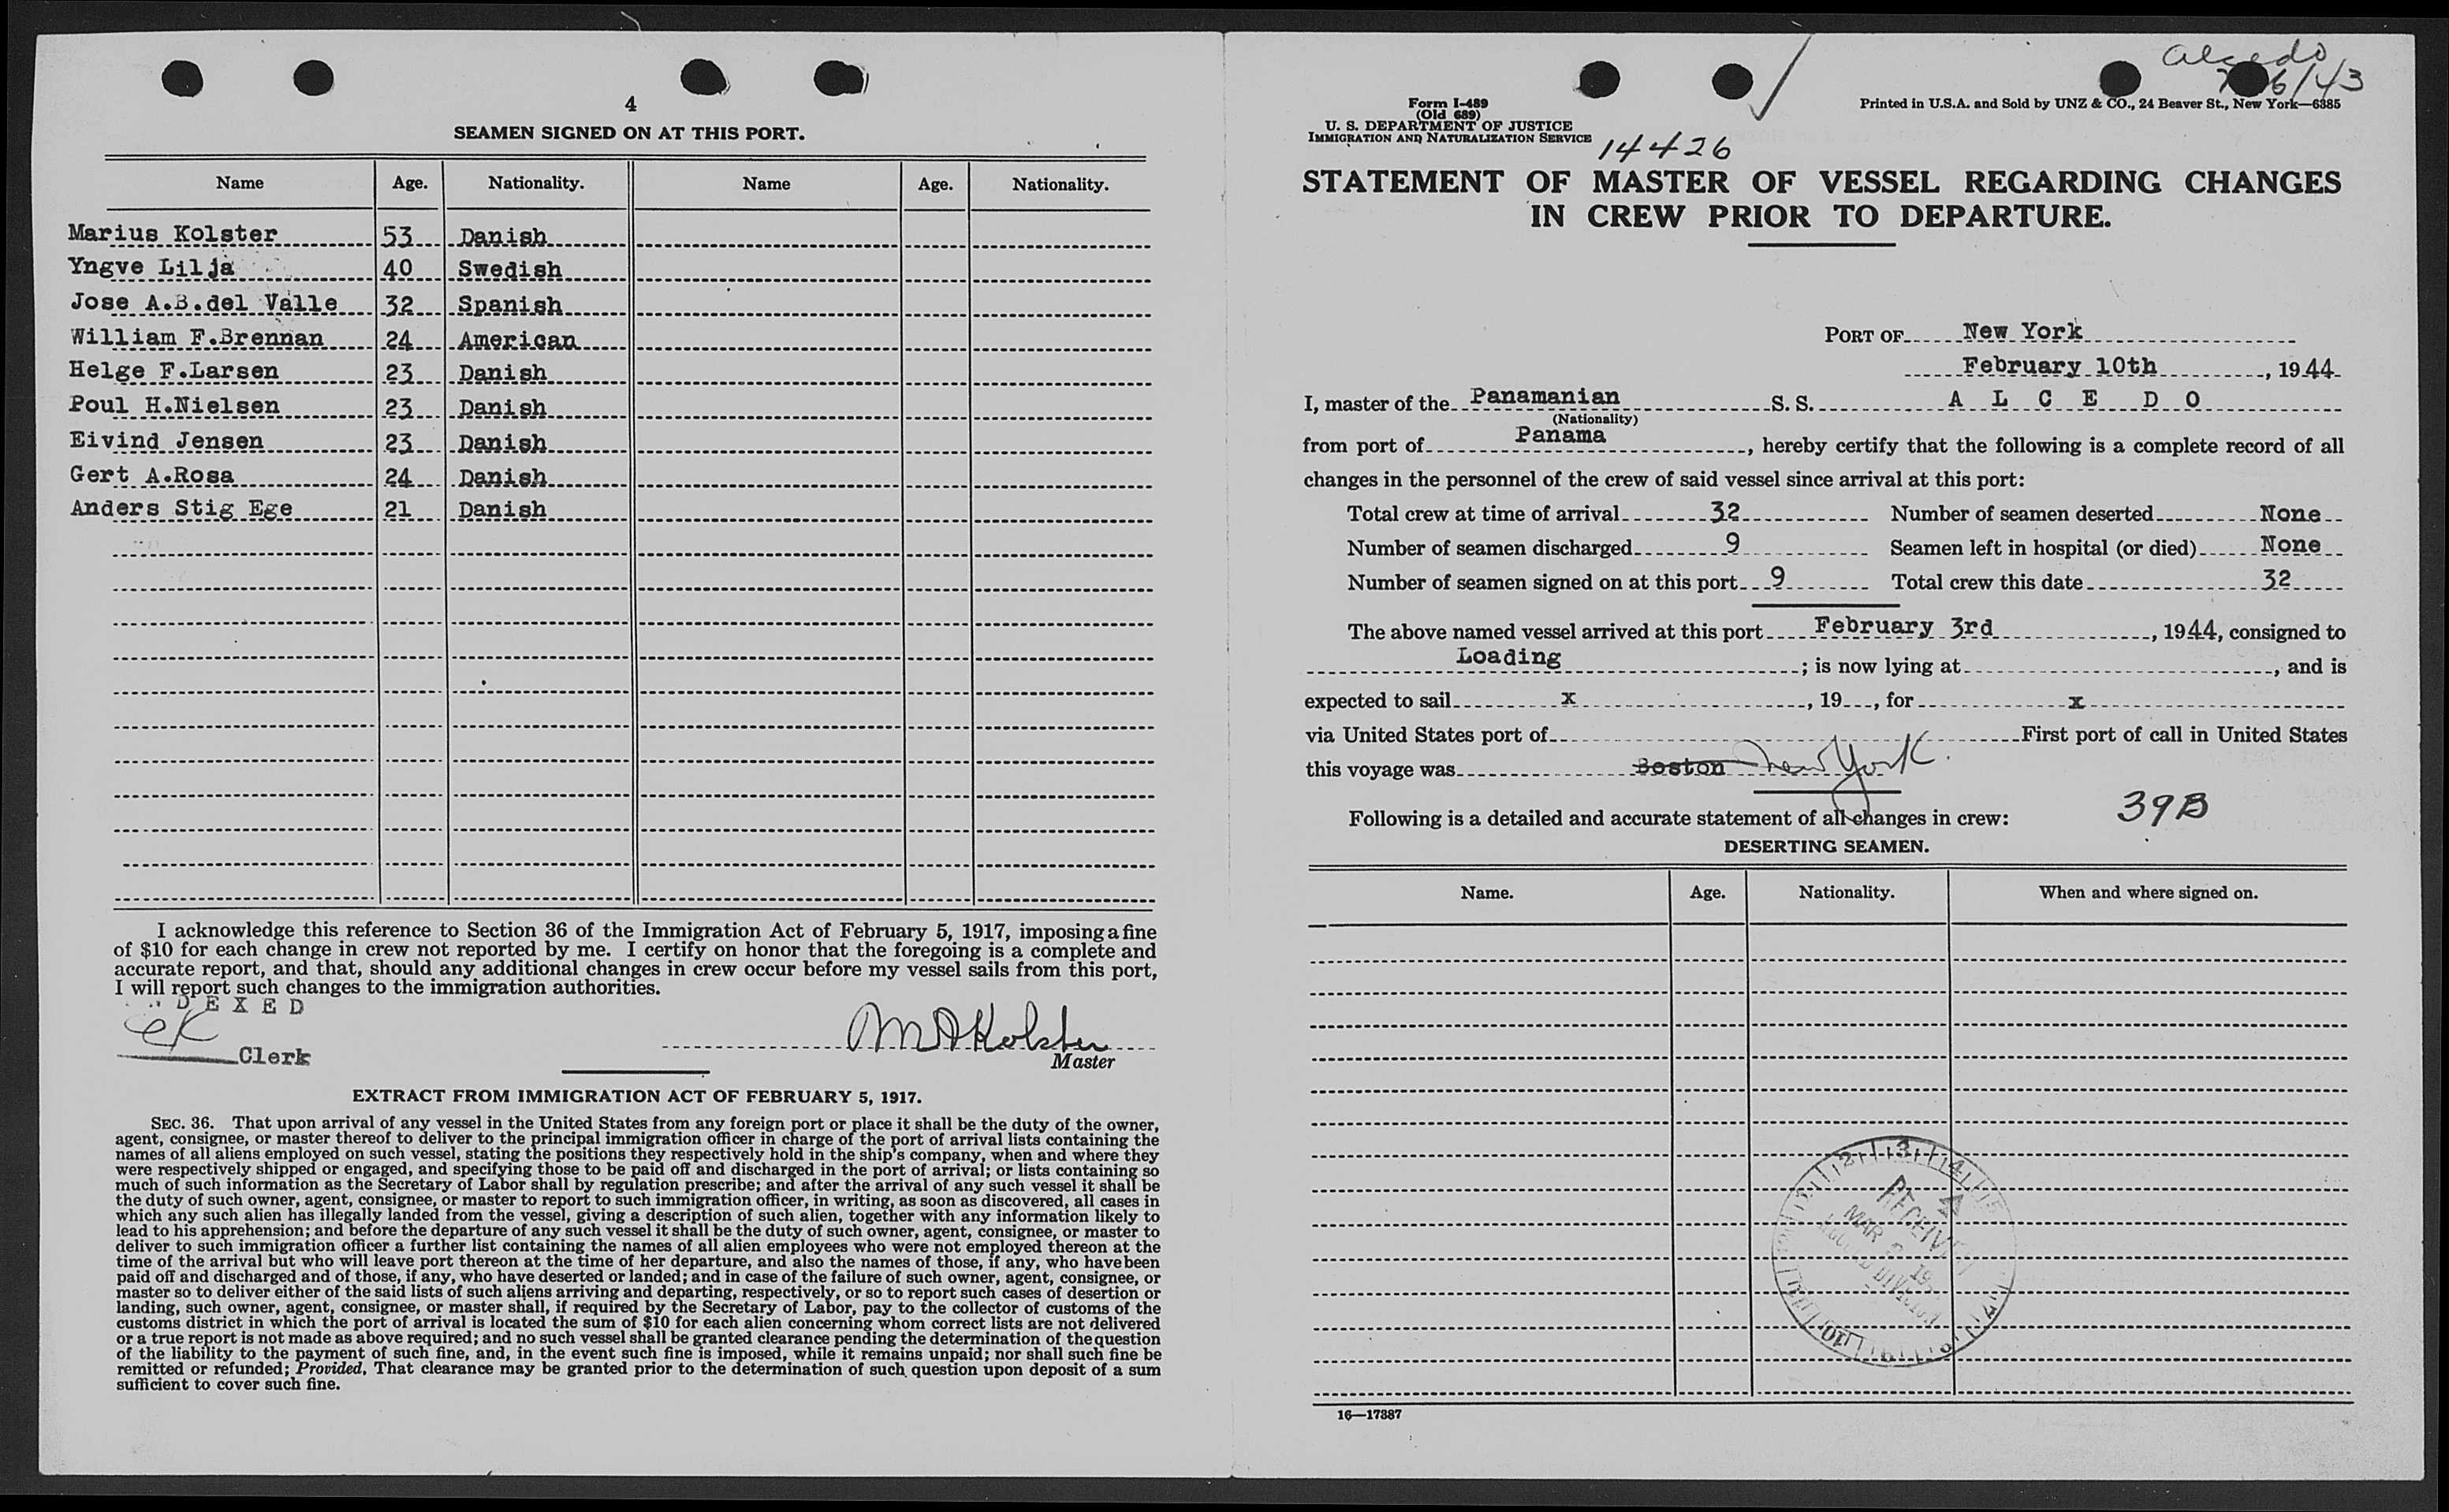 4
SEAMEN SIGNED ON AT THIS PORT.
Name Age. Nationality. Name Age. Nationality.
Marius Kolster 53 Danish
Yngve Lilja 40 Swedish
Jose A.B.del Valle 32 Spanish
William F.Brennan 24 American
Helge F.Larsen 23 Danish
Poul H.Nielsen 23 Danish
Eivind Jensen 23 Danish
Gert A.Rosa 24 Danish
Anders Stig Ege 21 Danish
I acknowledge this reference to Section 36 of the Immigration Act of February 5, 1917, imposing a fine
of $10 for each change in crew not reported by me. I certify on honor that the foregoing is a complete and
accurate report, and that, should any additional changes in crew occur before my vessel sails from this port,
I will report such changes to the immigration authorities.
DEXED
eK
Clerk
MAKolster
Master
EXTRACT FROM IMMIGRATION ACT OF FEBRUARY 5, 1917.
SEC. 36. That upon arrival of any vessel in the United States from any foreign port or place it shall be the duty of the owner,
agent, consignee, or master thereof to deliver to the principal immigration officer in charge of the port of arrival lists containing the
names of all aliens employed on such vessel, stating the positions they respectively hold in the ship's company, when and where they
were respectively shipped or engaged, and specifying those to be paid off and discharged in the port of arrival; or lists containing so
much of such information as the Secretary of Labor shall by regulation prescribe; and after the arrival of any such vessel it shall be
the duty of such owner, agent, consignee, or master to report to such immigration officer, in writing, as soon as discovered, all cases in
which any such alien has illegally landed from the vessel, giving a description of such alien, together with any information likely to
lead to his apprehension; and before the departure of any such vessel it shall be the duty of such owner, agent, consignee, or master to
deliver to such immigration officer a further list containing the names of all alien employees who were not employed thereon at the
time of the arrival but who will leave port thereon at the time of her departure, and also the names of those, if any, who have been
paid off and discharged and of those, if any, who have deserted or landed; and in case of the failure of such owner, agent, consignee, or
master so to deliver either of the said lists of such aliens arriving and departing, respectively, or so to report such cases of desertion or
landing, such owner, agent, consignee, or master shall, if required by the Secretary of Labor, pay to the collector of customs of the
customs district in which the port of arrival is located the sum of $10 for each alien concerning whom correct lists are not delivered
or a true report is not made as above required; and no such vessel shall be granted clearance pending the determination of the question
of the liability to the payment of such fine, and, in the event such fine is imposed, while it remains unpaid; nor shall such fine be
remitted or refunded; Provided, That clearance may be granted prior to the determination of such question upon deposit of a sum
sufficient to cover such fine.
Alcedo
6/43
Form I-489
(Old 689)
U. S. DEPARTMENT OF JUSTICE
IMMIGRATION AND NATURALIZATION SERVICE
Printed in U.S.A. and Sold by UNZ & CO., 24 Beaver St., New York—6385
14426
STATEMENT OF MASTER OF VESSEL REGARDING CHANGES
IN CREW PRIOR TO DEPARTURE.
PORT OF New York
February 10th, 1944
I, master of the Panamanian S. S. A L C E D O
(Nationality)
from port of Panama, hereby certify that the following is a complete record of all
changes in the personnel of the crew of said vessel since arrival at this port:
Total crew at time of arrival 32 Number of seamen deserted None
Number of seamen discharged 9 Seamen left in hospital (or died) None
Number of seamen signed on at this port 9 Total crew this date 32
The above named vessel arrived at this port February 3rd, 1944, consigned to
Loading; is now lying at, and is
expected to sail x, 19, for x
via United States port of First port of call in United States
this voyage was Boston New York.
Following is a detailed and accurate statement of all changes in crew:
39B
DESERTING SEAMEN.
Name. Age. Nationality. When and where signed on.
RECEIVED
MAR
DIVISION
16—17387